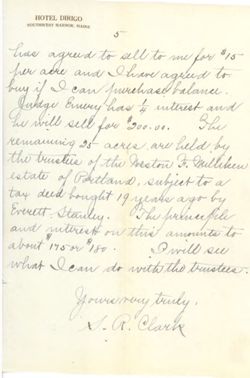 HOTEL DIRIGO
SOUTHWEST HARBOR, MAINE
5
has agreed to sell to me for $15
per acre and I have agreed to
buy if I can purchase balance.
Judge Emery has ¼ interest and
he will sell for $200.00. The
remaining 25 acres are held by
the trustees of the Weston F. Milliken
estate of Portland, subject to a
tax deed bought 19 years ago by
Everett Stanley. The principle
and interest on this amounts to
about $175 or $180. I will see
what I can do with the trustees.
Yours very truly,
S. R. Clark